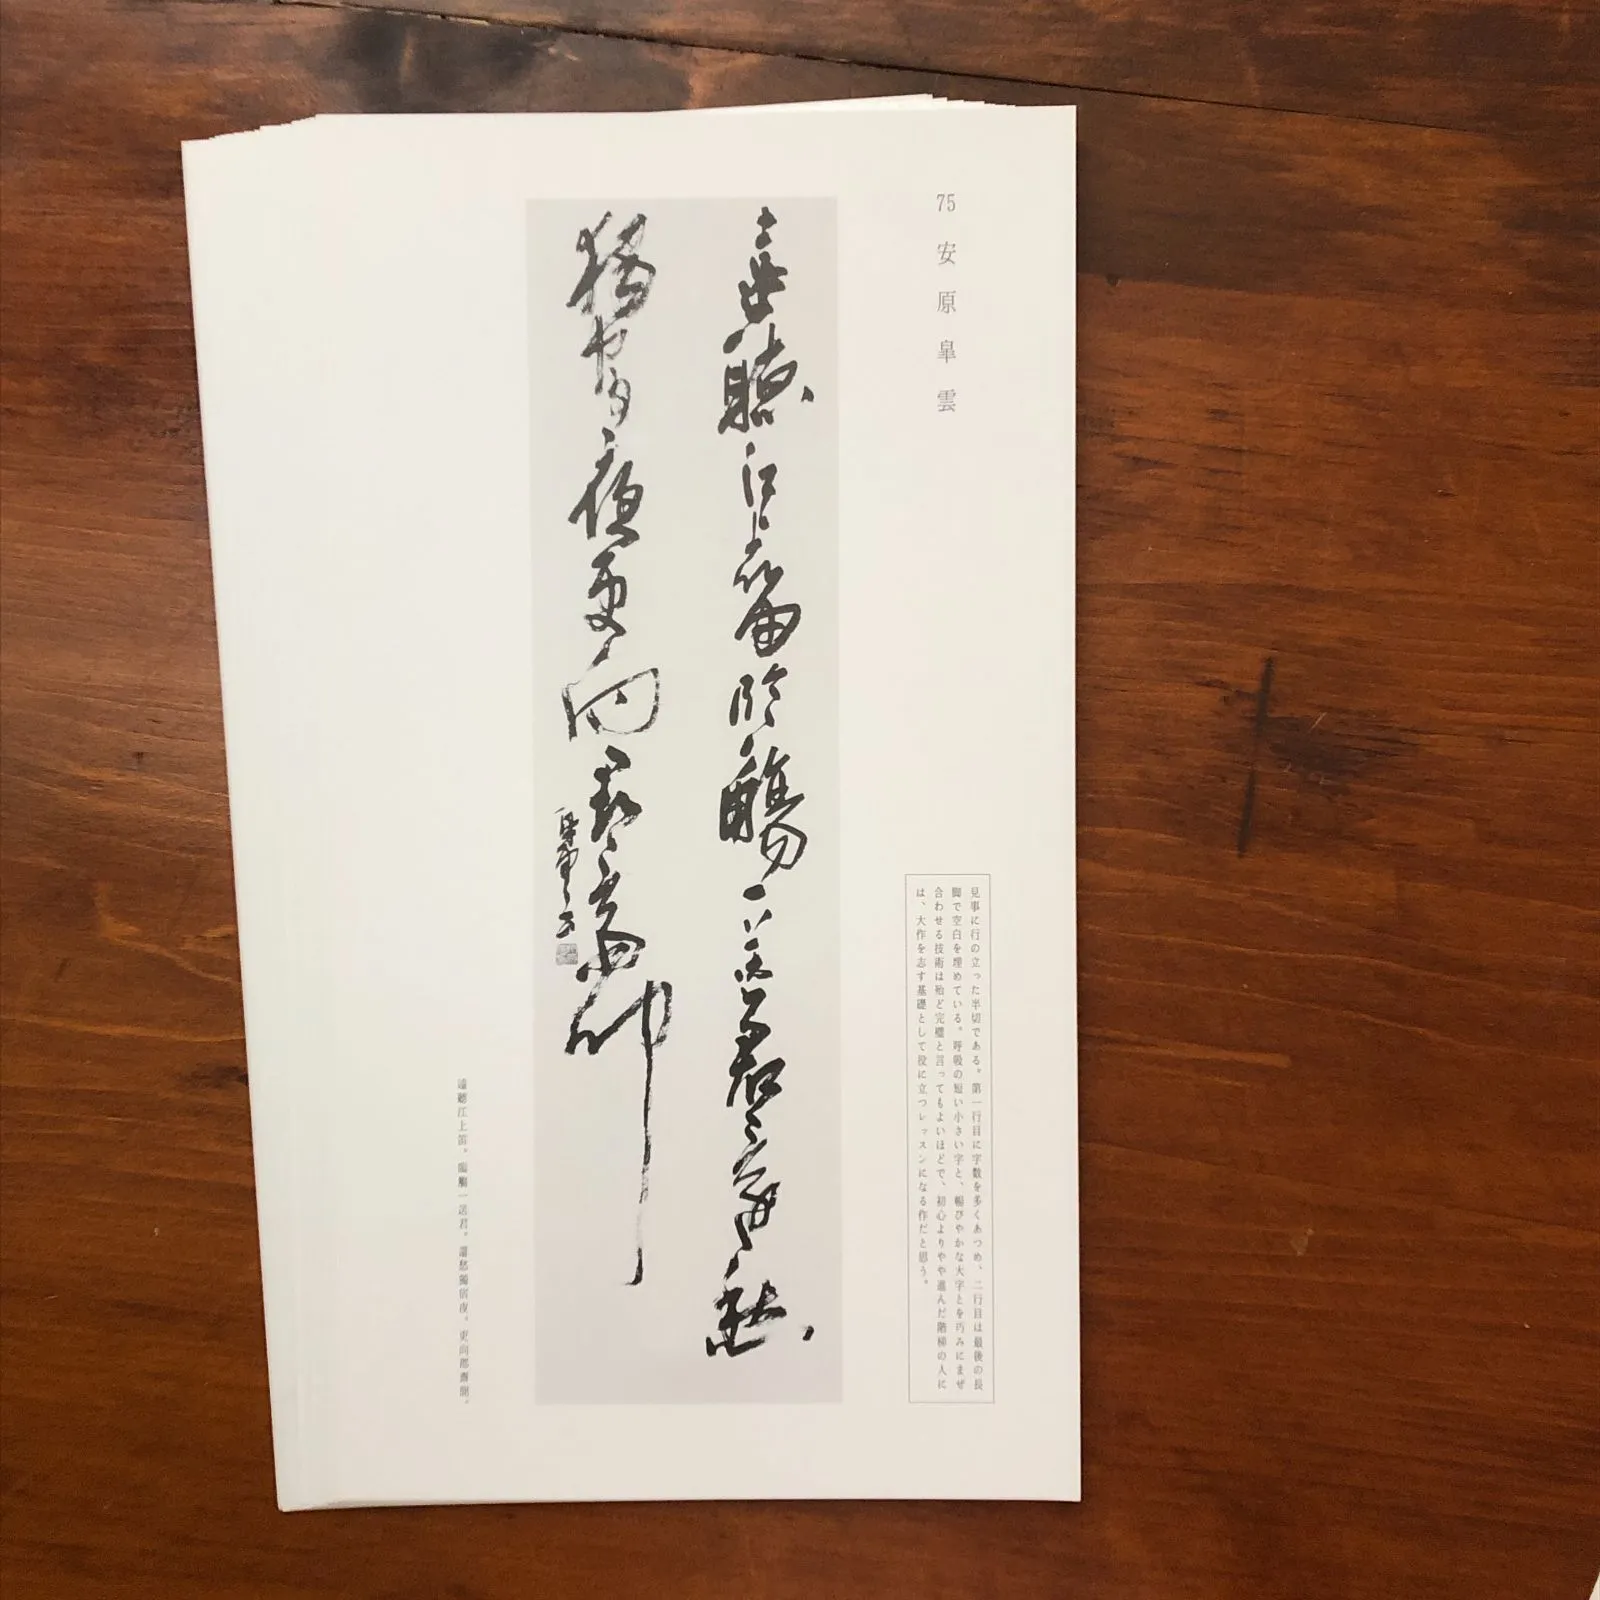 75 安原皐雲
見事に行の立った半切である。第一行目に字数を多くあつめ、二行目は最後の長
脚で空白を埋めている。呼吸の短い小さい字と、暢びやかな大字とを巧みにまぜ
合わせる技術は殆ど完璧と言ってもよいほどで、初心よりやや進んだ階梯の人に
は、大作を志す基礎として役に立つレッスンになる作だと思う。
遠聽江上笛臨觴一送君還愁
獨宿夜更向郡齋聞
遠聽江上笛。臨觴一送君。還愁獨宿夜。更向郡齋聞。